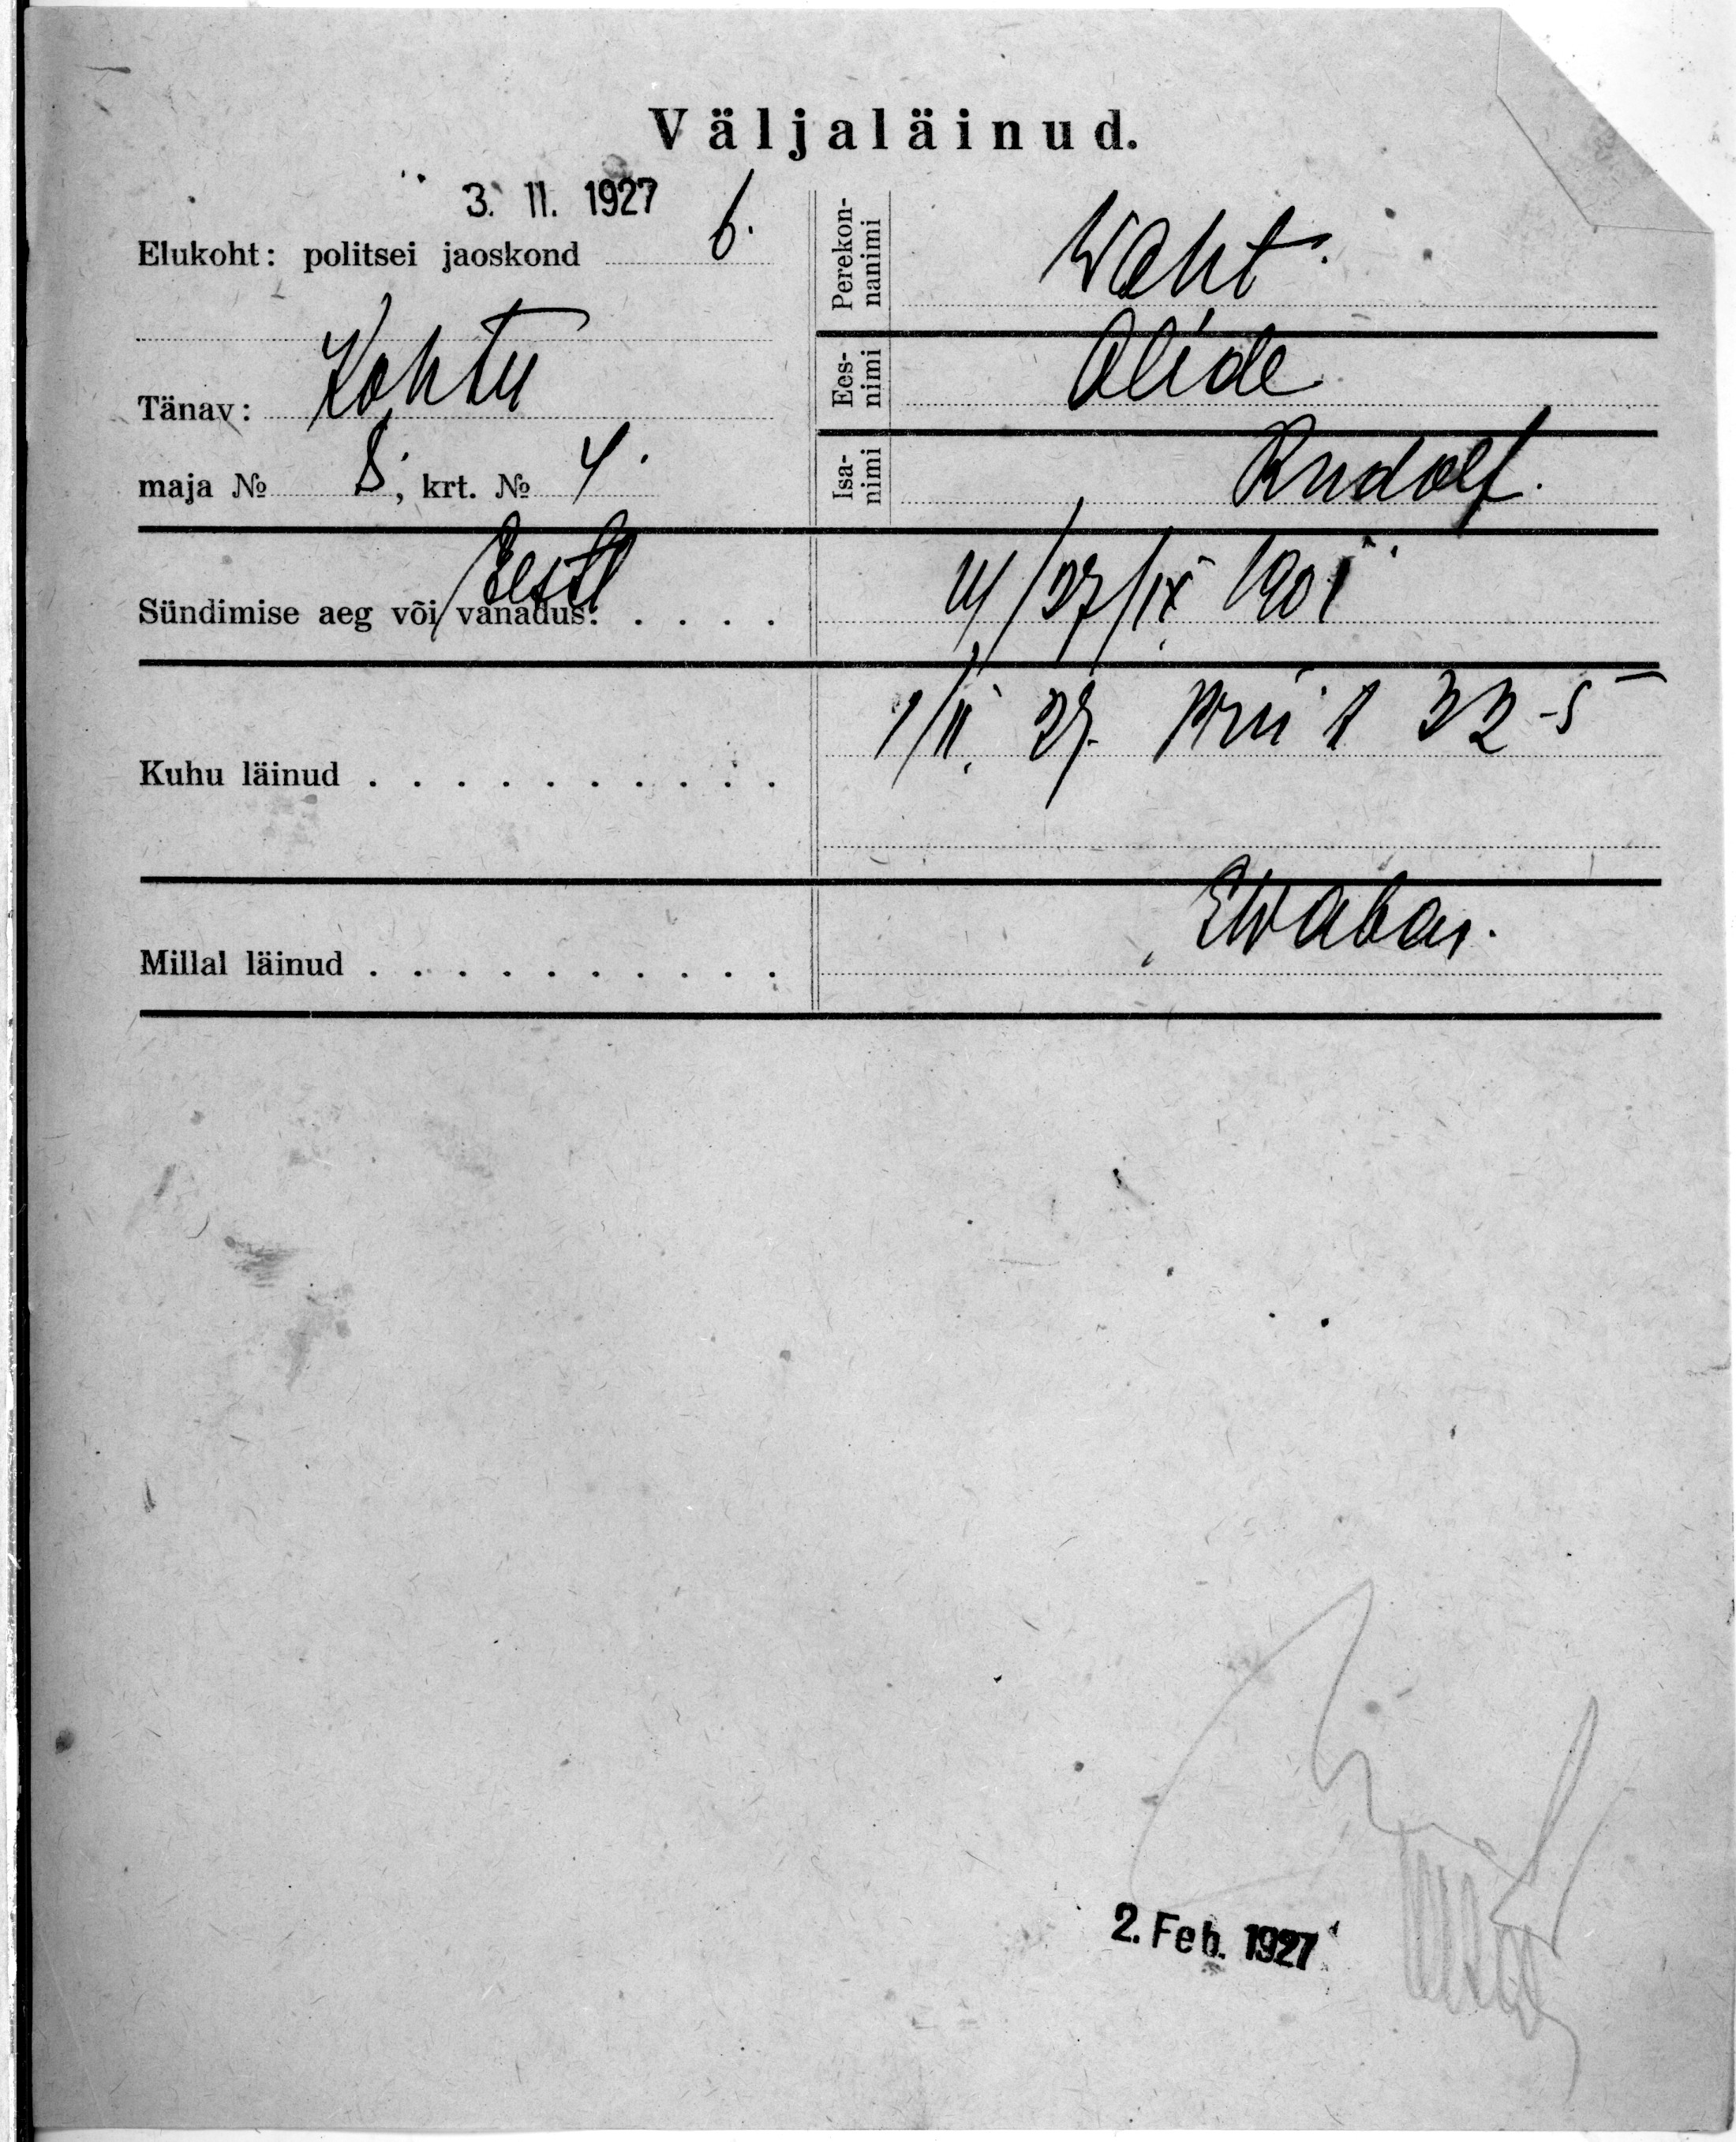 Väljaläinud.
3. II. 1927
Elukoht: politsei jaoskond 6.
Perekonnanimi Waht.
Eesnimi Alide
Tänav: Kohtu
Isanimi Rudolf.
maja № 8, krt. № 4.
Eesti
Sündimise aeg või vanadus: . . . . 27/IX 1901
Kuhu läinud . . . . . . . . . . 1/II. 27. 32-5
Millal läinud . . . . . . . . . .
2. Feb. 1927